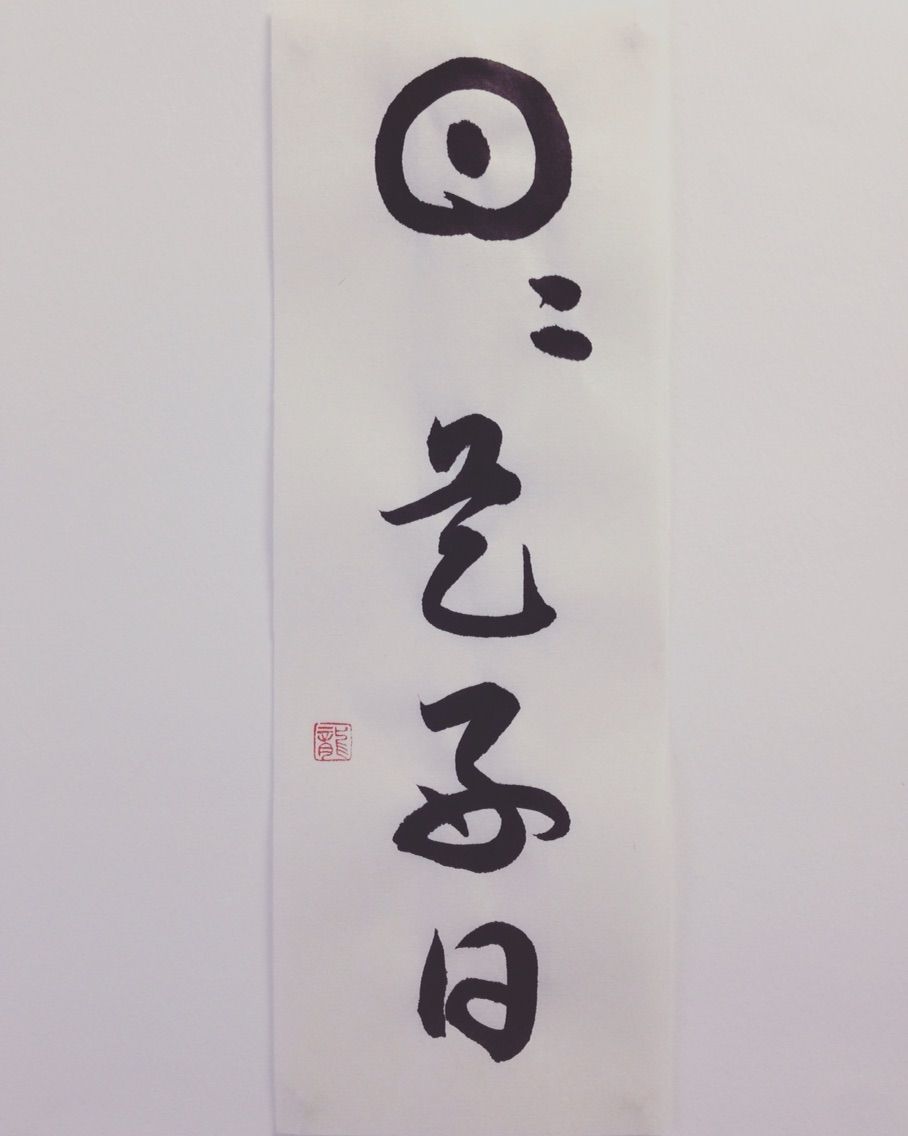 日々是好日
龍